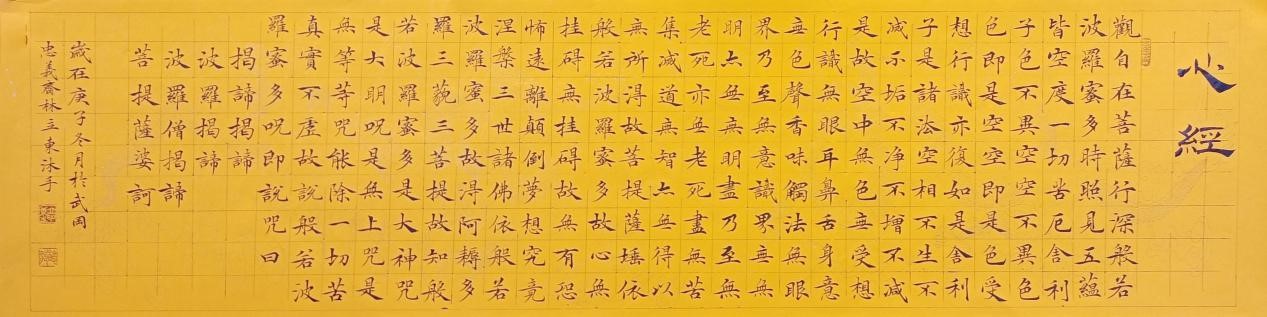 心經
觀自在菩薩行深般若
波羅蜜多時照見五蘊
皆空度一切苦厄舍利
子色不異空空不異色
色即是空空即是色受
想行識亦復如是舍利
子是諸法空相不生不
滅不垢不净不增不減
是故空中無色無受想
行識無眼耳鼻舌身意
無色聲香味觸法無眼
界乃至無意識界無無
明亦無無明盡乃至無
老死亦無老死盡無苦
集滅道無智亦無得以
無所得故菩提薩埵依
般若波羅蜜多故心無
挂碍無挂碍故無有恐
怖遠離顛倒夢想究竟
涅槃三世諸佛依般若
波羅蜜多故得阿耨多
羅三藐三菩提故知般
若波羅蜜多是大神咒
是大明呪是無上咒是
無等等咒能除一切苦
真實不虛故說般若波
羅蜜多呪即說咒曰
揭諦揭諦
波羅揭諦
波羅僧揭諦
菩提薩婆訶
歲在庚子冬月於武岡
忠義齋林立東沐手